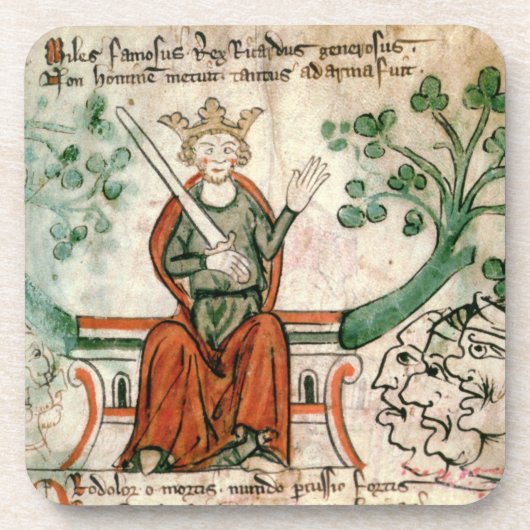 Miles famosus Rex Ricardus generosus.
Non hominem metuit. tantus ad arma fuit.
dolor o mortis. mundo fortis